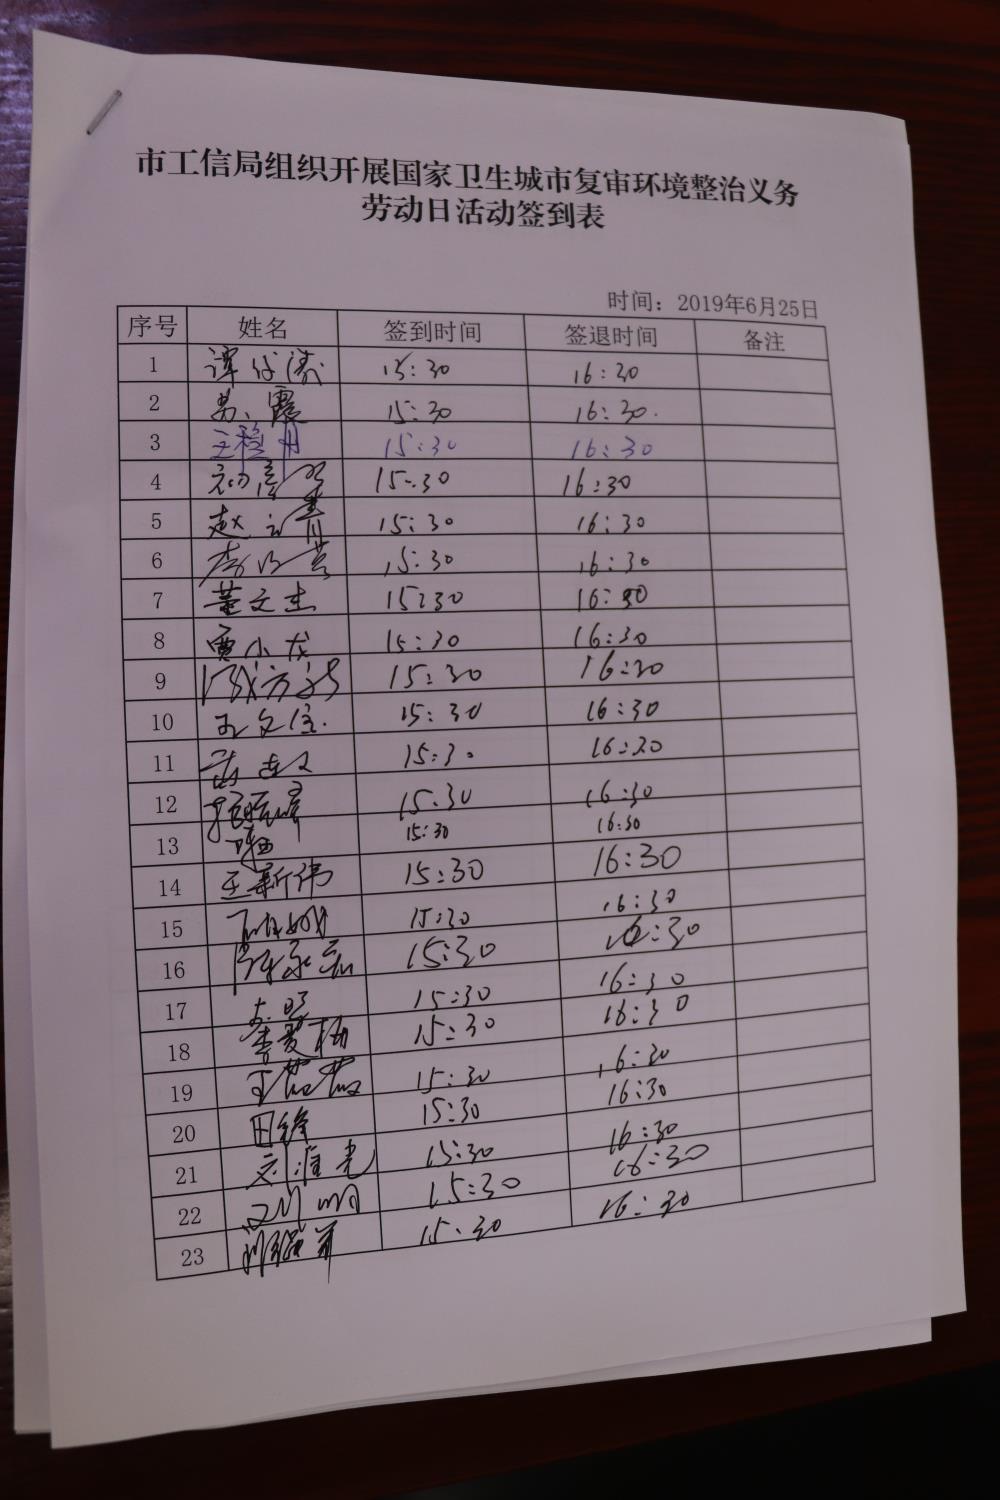 市工信局组织开展国家卫生城市复审环境整治义务
劳动日活动签到表
时间：2019年6月25日
序号 姓名 签到时间 签退时间 备注
1 15:30 16:30
2 苏霞 15:30 16:30
3 15:30 16:30
4 15:30 16:30
5 赵 15:30 16:30
6 李 15:30 16:30
7 董文杰 15:30 16:30
8 贾小龙 15:30 16:30
9 15:30 16:30
10 15:30 16:30
11 15:30 16:30
12 15:30 16:30
13 15:30 16:30
14 王新伟 15:30 16:30
15 15:30 16:30
16 陈永宏 15:30 16:30
17 15:30 16:30
18 李爱梅 15:30 16:30
19 王茹茹 15:30 16:30
20 田锋 15:30 16:30
21 刘淮光 15:30 16:30
22 15:30 16:30
23 15:30 16:30